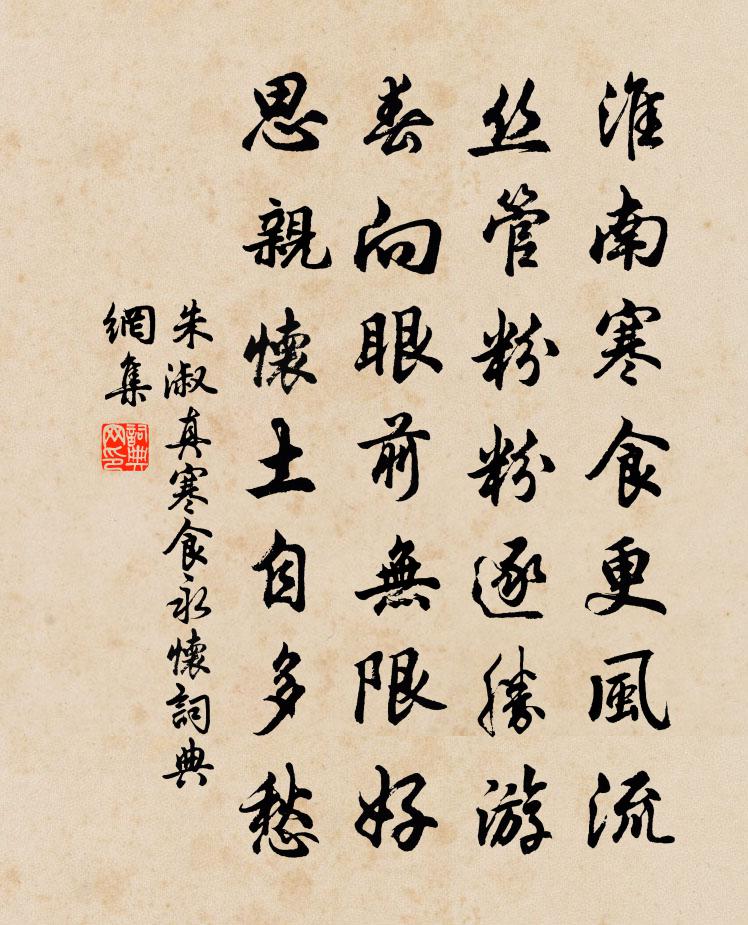 淮南寒食更風流
丝管粉粉逐勝游
春向眼前無限好
思親懷土自多愁
朱淑真寒食永懷詞典
網集
詞典
网印